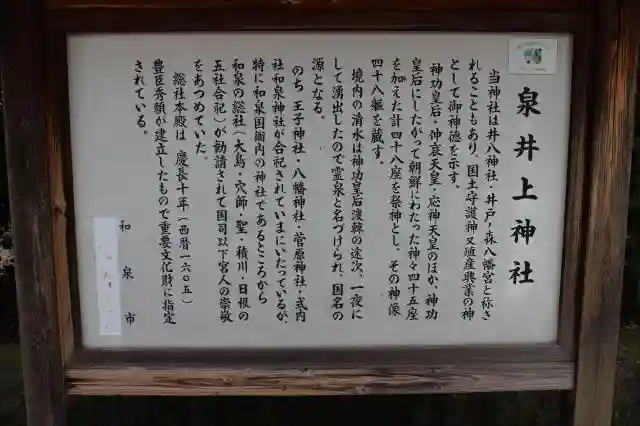 泉井上神社
当神社は井八神社・井戸ノ森八幡宮と称さ
れることもあり、国土守護神又殖産興業の神
として御神徳を示す。
神功皇后・仲哀天皇・応神天皇のほか、神功
皇后にしたがって朝鮮にわたった神々四十五座
を加えた計四十八座を祭神とし、その神像
四十八軀を蔵す。
境内の清水は神功皇后渡韓の途次、一夜に
して湧出したので霊泉と名づけられ、国名の
源となる。
のち王子神社・八幡神社・菅原神社・式内
社和泉神社が合祀されていまにいたっているが、
特に和泉国衙内の神社であるところから
和泉の総社(大鳥・穴師・聖・積川・日根の
五社合祀)が勧請されて国司以下官人の崇敬
をあつめていた。
総社本殿は慶長十年(西暦一六〇五)
豊臣秀頼が建立したもので重要文化財に指定
されている。
和泉市